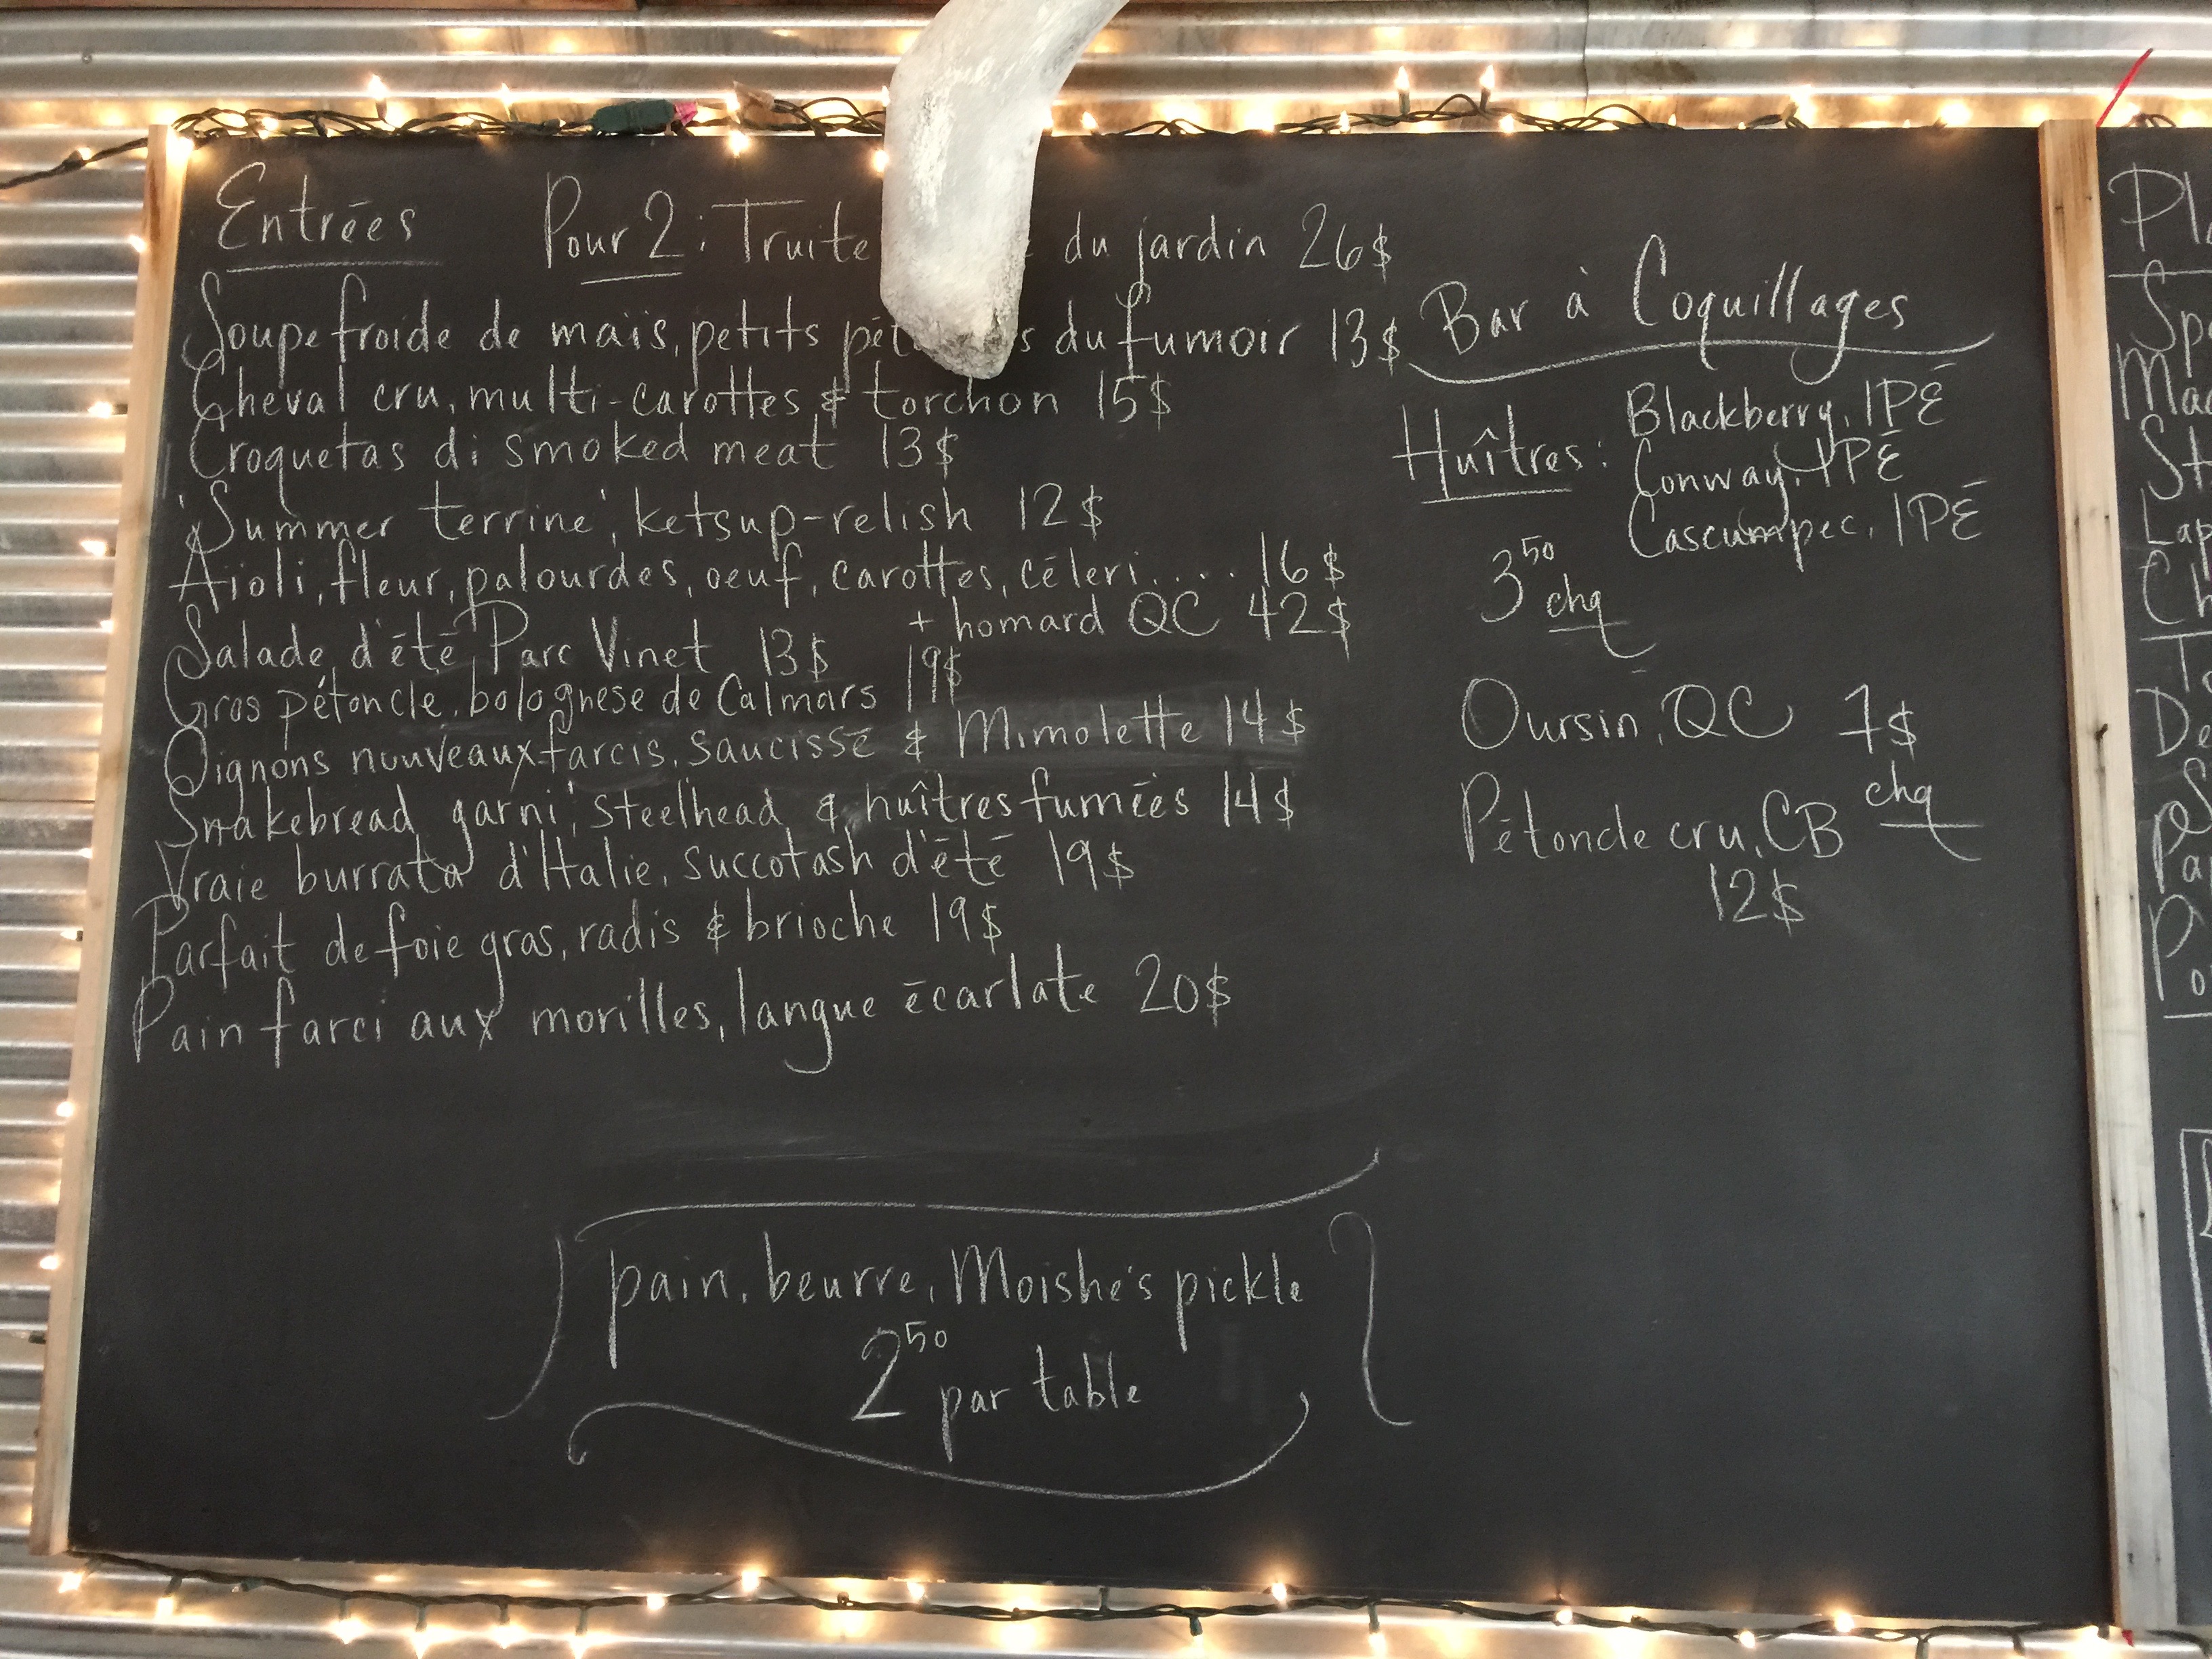 Entrées
Pour 2 : Truite du jardin 26$
Soupe froide de maïs, petits du fumoir 13$
Cheval cru, multi-carottes & torchon 15$
Croquetas di smoked meat 13$
'Summer terrine', ketsup-relish 12$
Aioli, fleur, palourdes, oeuf, carottes, céleri.... 16$
+ homard QC 42$
Salade d'été, Parc Vinet 13$
Gros pétoncle, bolognese de Calmars 19$
Oignons nouveaux farcis, saucisse & Mimolette 14$
Snakebread garni', steelhead & huîtres fumées 14$
Vraie burrata d'Italie, succotash d'été 19$
Parfait de foie gras, radis & brioche 19$
Pain farci aux morilles, langue écarlate 20$
Bar à Coquillages
Huîtres : Blackberry, IPÉ
Conway, IPÉ
Cascumpec, IPÉ
3 50 chq
Oursin, QC 7$ chq
Pétoncle cru, CB
12$
pain, beurre, Moishe's pickle
2 50 par table